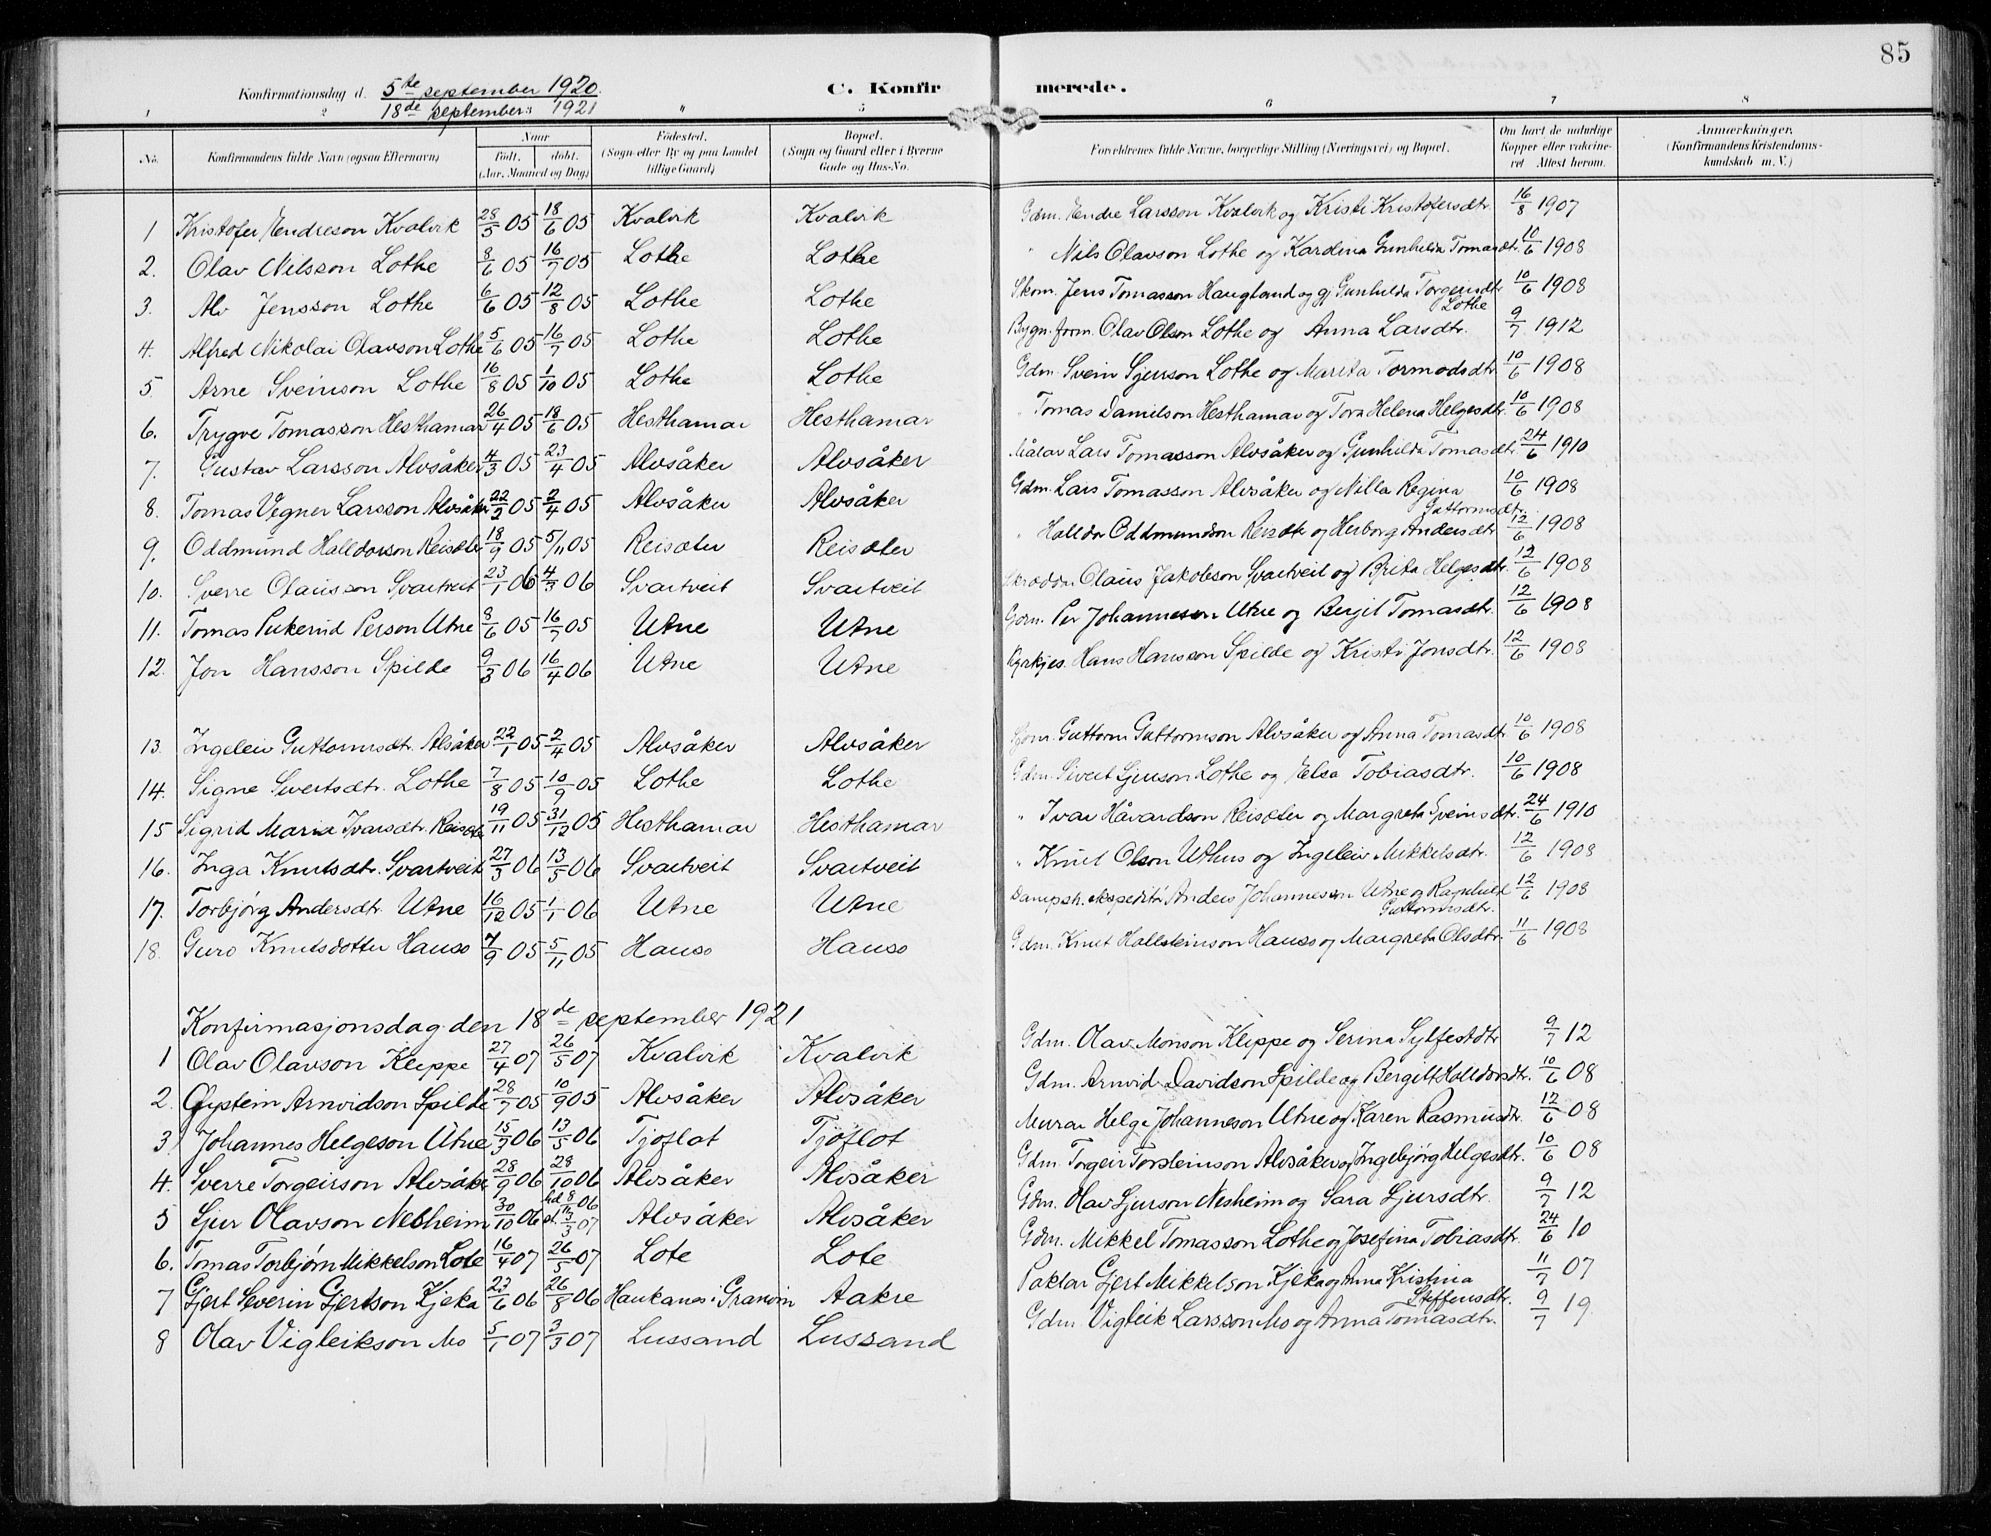 85
Konfirmationsdag d. 5te september 1920.
18de september 1921
C. Konfirmerede.
1 2 3 4 5 6 7 8
No. Konfirmandens fulde Navn (ogsaa Efternavn) Naar født. døbt. (Aar, Maaned og Dag) Fødested. (Sogn eller By og paa Landet tillige Gaard) Bopæl. (Sogn og Gaard eller i Byerne Gade og Hus-No. Forældrenes fulde Navne, borgerlige Stilling (Næringsvei) og Bopæl. Om havt de naturlige Kopper eller vakcineret Attest herom. Anmærkninger. (Konfirmandens Kristendomskundskab m. V.)
1 Kristofer Endreson Kvalvik 28/5 05 18/6 05 Kvalvik Kvalvik Gdm. Endre Larsson Kvalvik og Kristi Kristofersdtr. 16/8 1907
2. Olav Nilsson Lothe 8/6 05 16/7 05 Lothe Lothe " Nils Olavson Lothe og Kardina Gunhilda Tomasdtr. 10/6 1908
3. Alv Jensson Lothe 6/6 05 12/8 05 Lothe Lothe Skom. Jens Tomasson Haugland og Gunhilda Torgeirsdtr. Lothe 10/6 1908
4. Alfred Nikolai Olavson Lothe 5/6 05 16/7 05 Lothe Lothe Bygn. form. Olav Olson Lothe og Anna Larsdtr. 9/7 1912
5 Arne Sveinson Lothe 16/8 05 1/10 05 Lothe Lothe Gdm. Svein Sjurson Lothe og Marita Tormodsdtr. 10/6 1908
6. Trygve Tomasson Hesthamar 26/4 05 18/6 05 Hesthamar Hesthamar " Tomas Danielson Hesthamar og Tora Helena Helgesdtr. 10/6 1908
7. Gustav Larsson Alvsåker 4/3 05 23/4 05 Alvsåker Alvsåker Målar Lars Tomasson Alvsåker og Gunhilda Tomasdtr. 24/6 1910
8. Tomas Vegner Larsson Alvsåker 22/2 05 2/4 05 Alvsåker Alvsåker Gdm. Lars Tomasson Alvsåker og Nilla Regina Guttormsdtr. 10/6 1908
9. Oddmund Halldorson Reisæter 18/9 05 5/11 05 Reisæter Reisæter " Halldor Oddmundson Reisæter og Herborg Andersdtr. 12/6 1908
10. Sverre Olausson Svartveit 23/1 06 4/3 06 Svartveit Svartveit Skræddar Olaus Jakobson Svartveit og Brita Helgesdtr. 12/6 1908
11. Tomas Person Utne 8/6 05 16/7 05 Utne Utne Gdm. Per Johanneson Utne og Bergit Tomasdtr. 12/6 1908
12. Jon Hansson Spilde 9/3 06 16/4 06 Utne Utne Kyrkjes. Hans Hansson Spilde og Kristi Jonsdtr. 12/6 1908
13. Ingeleiv Guttormsdtr. Alsåker 22/1 05 2/4 05 Alvsåker Alvsåker Guttorm Guttormson Alvsåker og Anna Tomasdtr. 10/6 1908
14. Signe Sivertsdtr. Lothe 7/8 05 10/9 05 Lothe Lothe Gdm. Sivert Sjurson Lothe og Elsa Tobiasdtr. 10/6 1908
15 Sigrid Maria Ivarsdtr. Reisæter 19/11 05 31/12 05 Hesthamar Hesthamar " Ivar Håvardson Reisæter og Margreta Sveinsdtr. 24/6 1910
16. Inga Knutsdtr. Svartveit 27/3 06 13/5 06 Svartveit Svartveit " Knut Olson Uthus og Ingeleiv Mikkelsdtr. 12/6 1908
17. Torbjørg Andersdtr. Utne 16/12 05 1/1 06 Utne Utne Dampsk. ekspeditør Anders Johanneson Utne og Ragnhild Guttormsdtr. 12/6 1908
18. Guro Knutsdotter Hauso 7/9 05 5/11 05 Hauso Hauso Gdm. Knut Hallsteinson Hauso og Margreta Olsdtr. 11/6 1908
Konfirmasjonsdag den 18de september 1921
1 Olav Olavson Kleppe 27/4 07 26/5 07 Kvalvik Kvalvik Gdm. Olav Monson Kleppe og Serina Sylfestdtr 9/7 12
2. Øystein Arnvidson Spilde 28/7 05 10/9 05 Alvsåker Alvsåker Gdm. Arnvid Davidson Spilde og Bergitt Halldorsdtr. 10/6 08
3 Johannes Helgeson Utne 15/3 06 13/5 06 Tjoflot Tjoflot Murar Helge Johanneson Utne og Karen Rasmusdtr. 12/6 08
4. Sverre Torgeirson Alvsåker 28/9 06 28/10 06 Alvsåker Alvsåker Gdm. Torgeir Torsteinson Alvsåker og Ingebjørg Helgesdtr. 10/6 08
5 Sjur Olavson Nesheim 30/10 06 hd. 8/11 06 st. 3/3 07 Alvsåker Alvsåker Gdm. Olav Sjurson Nesheim og Sara Sjursdtr. 9/7 12
6. Tomas Torbjørn Mikkelson Lote 16/4 07 26/5 07 Lote Lote Gdm. Mikkel Tomasson Lothe og Josefina Tobiasdtr. 24/6 10
7 Gjert Severin Gjertson Kjeka 23/6 06 26/8 06 Haukanes i Granvin Aakre Paktar Gjert Mikkelson Kjeka og Anna Kristina Steffensdtr. 11/7 07
8 Olav Vigleikson Mo 5/1 07 3/3 07 Lussand Lussand Gdm. Vigleik Larsson Mo og Anna Tomasdtr. 9/7 19.